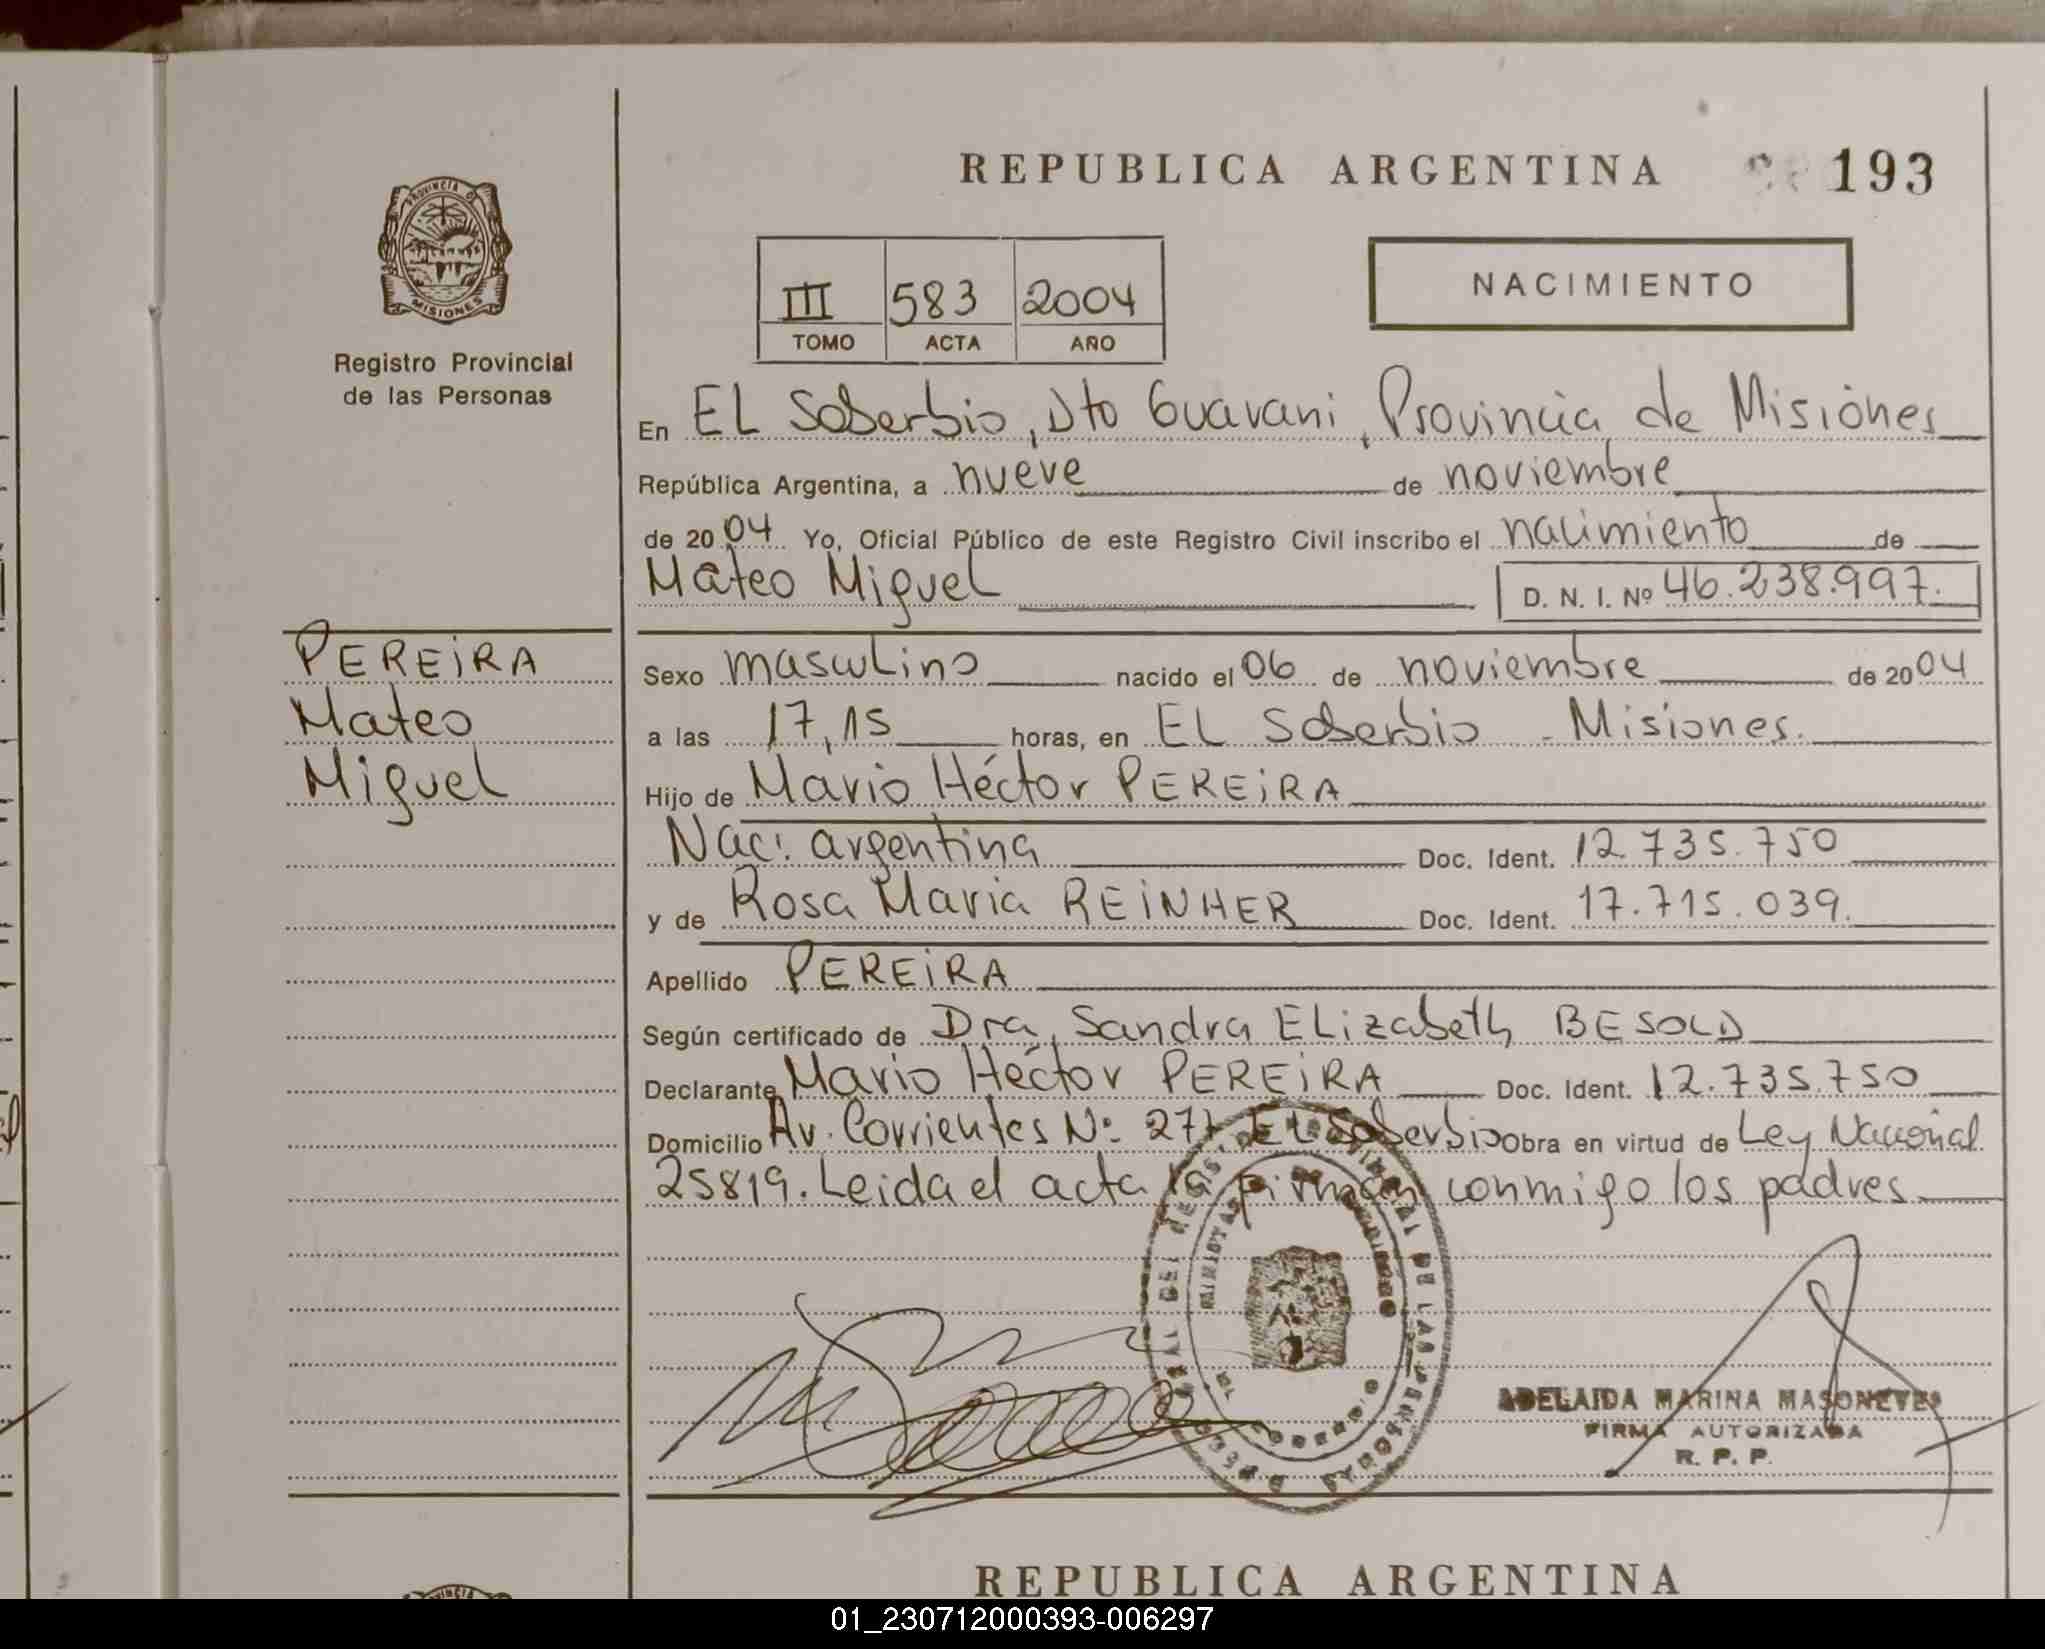 REPUBLICA ARGENTINA 193
PROVINCIA DE
MISIONES
Registro Provincial
de las Personas
III 583 2004
TOMO ACTA AÑO
NACIMIENTO
En EL Soberbio, Dto Guarani, Provincia de Misiones
República Argentina, a nueve de noviembre
de 2004 Yo, Oficial Público de este Registro Civil inscribo el nacimiento de
Mateo Miguel D. N. I. Nº 46.238.997.
PEREIRA
Mateo
Miguel
Sexo masculino nacido el 06 de noviembre de 2004
a las 17,15 horas, en EL Soberbio - Misiones.
Hijo de Mario Héctor PEREIRA
Nac: argentina Doc. Ident. 12.735.750
y de Rosa Maria REINHER Doc. Ident. 17.715.039.
Apellido PEREIRA
Según certificado de Dra. Sandra ELizabeth BESOLD
Declarante Mario Héctor PEREIRA Doc. Ident. 12.735.750
Domicilio Av. Corrientes Nº 277 EL Soberbio Obra en virtud de Ley Nacional
25819. Leida el acta la firman conmigo los padres
ADELAIDA MARINA MASONEVES
FIRMA AUTORIZADA
R. P. P.
REPUBLICA ARGENTINA
01_230712000393-006297